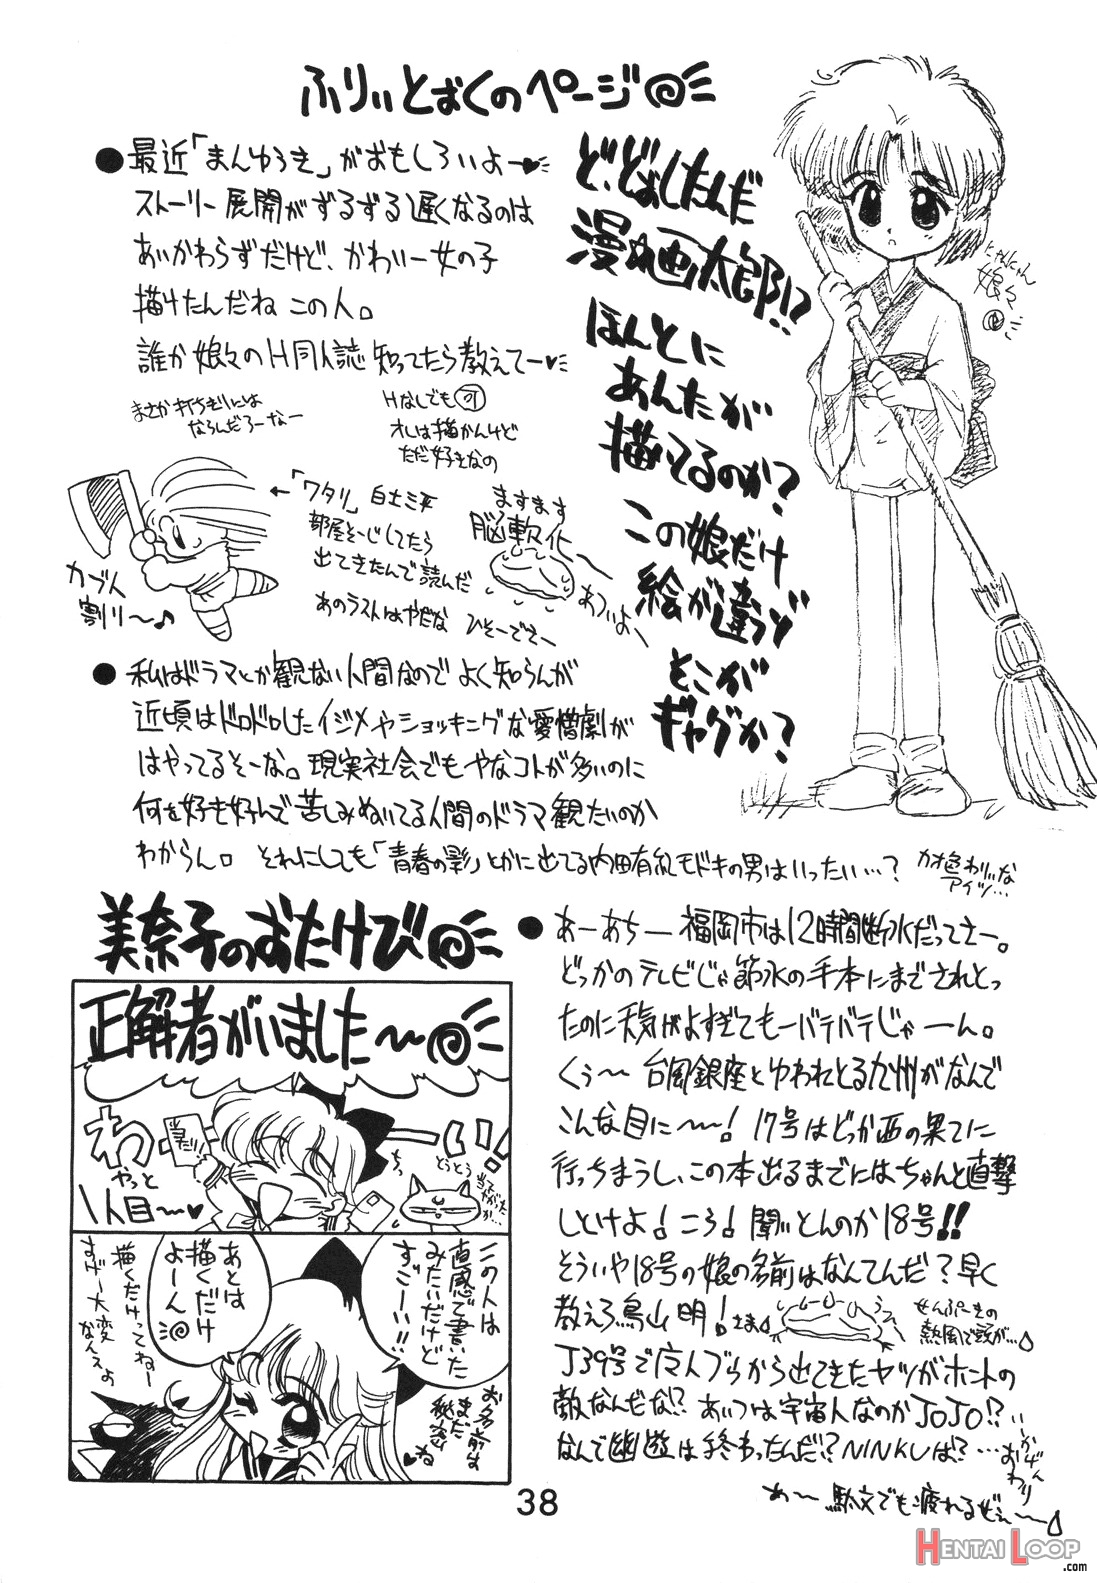 ふりぃとおくのページ
●最近「まんゆうき」がおもしろいよー♥
ストーリー展開がずるずる遅くなるのは
あいかわらずだけど、かわいー女の子
描けたんだね この人。
誰か娘々のH同人誌知ってたら教えてー♥
まさか打ちぎりには
ならんだろーなー
Hなしでも可
オレは描かんけど
ただ好きなの
ど、どおしたんだ
漫☆画太郎!?
ほんとに
あんたが
描いてるのか?
この娘だけ
絵が違うゾ
そこが
ギャグか?
にゃんにゃん
娘々
←「ワタリ」白土三平
部屋そーじしてたら
出てきたんで読んだ
あのラストはやだな ひそーでさー
カブト
割り〜♪
ますます
脳軟化
あついよ〜
●私はドラマとか観ない人間なのでよく知らんが
近頃はドロドロしたイジメやショッキングな愛憎劇が
はやってるそーな。現実社会でもやなコトが多いのに
何を好き好んで苦しみぬいてる人間のドラマ観たいのか
わからん。 それにしても「青春の影」とかに出てる内田有紀モドキの男はいったい…?
カオ色わりぃな
アイツ…
美奈子のおたけび
正解者がいました〜
わーい!
当たり!
やっと
1人目〜♥
ちっ
とうとう
当てやがったか…
この人は
直感で書いた
みたいだけど
すごーい!!
お名前は
まだ
秘密
♥ね
あとは
描くだけ
よーん
描くだけってねー
すげー大変
なんスよ
●あーあちー 福岡市は12時間断水だってさー。
どっかのテレビじゃ節水の手本にまでされとっ
たのに天気がよすぎてもーバテバテじゃーん。
くぅ〜 台風銀座とゆわれとる九州がなんで
こんな目に〜〜! 17号はどっか西の果てに
行っちまうし、この本出るまでにはちゃんと直撃
しとけよ! ころ! 聞いとんのか18号!!
そういや18号の娘の名前はなんてんだ? 早く
教えろ鳥山明! さま
せんぷーきの
熱風で頭が…
J39号で庭人ブウから出てきたヤツがホントの
敵なんだな!? あいつは宇宙人なのかJOJO!?
なんで幽遊は終わったんだ!? NINKUは? …
かぜん
おわり
あ〜 駄文でも疲れるぜぇ〜
38
HENTAI LOOP
.com